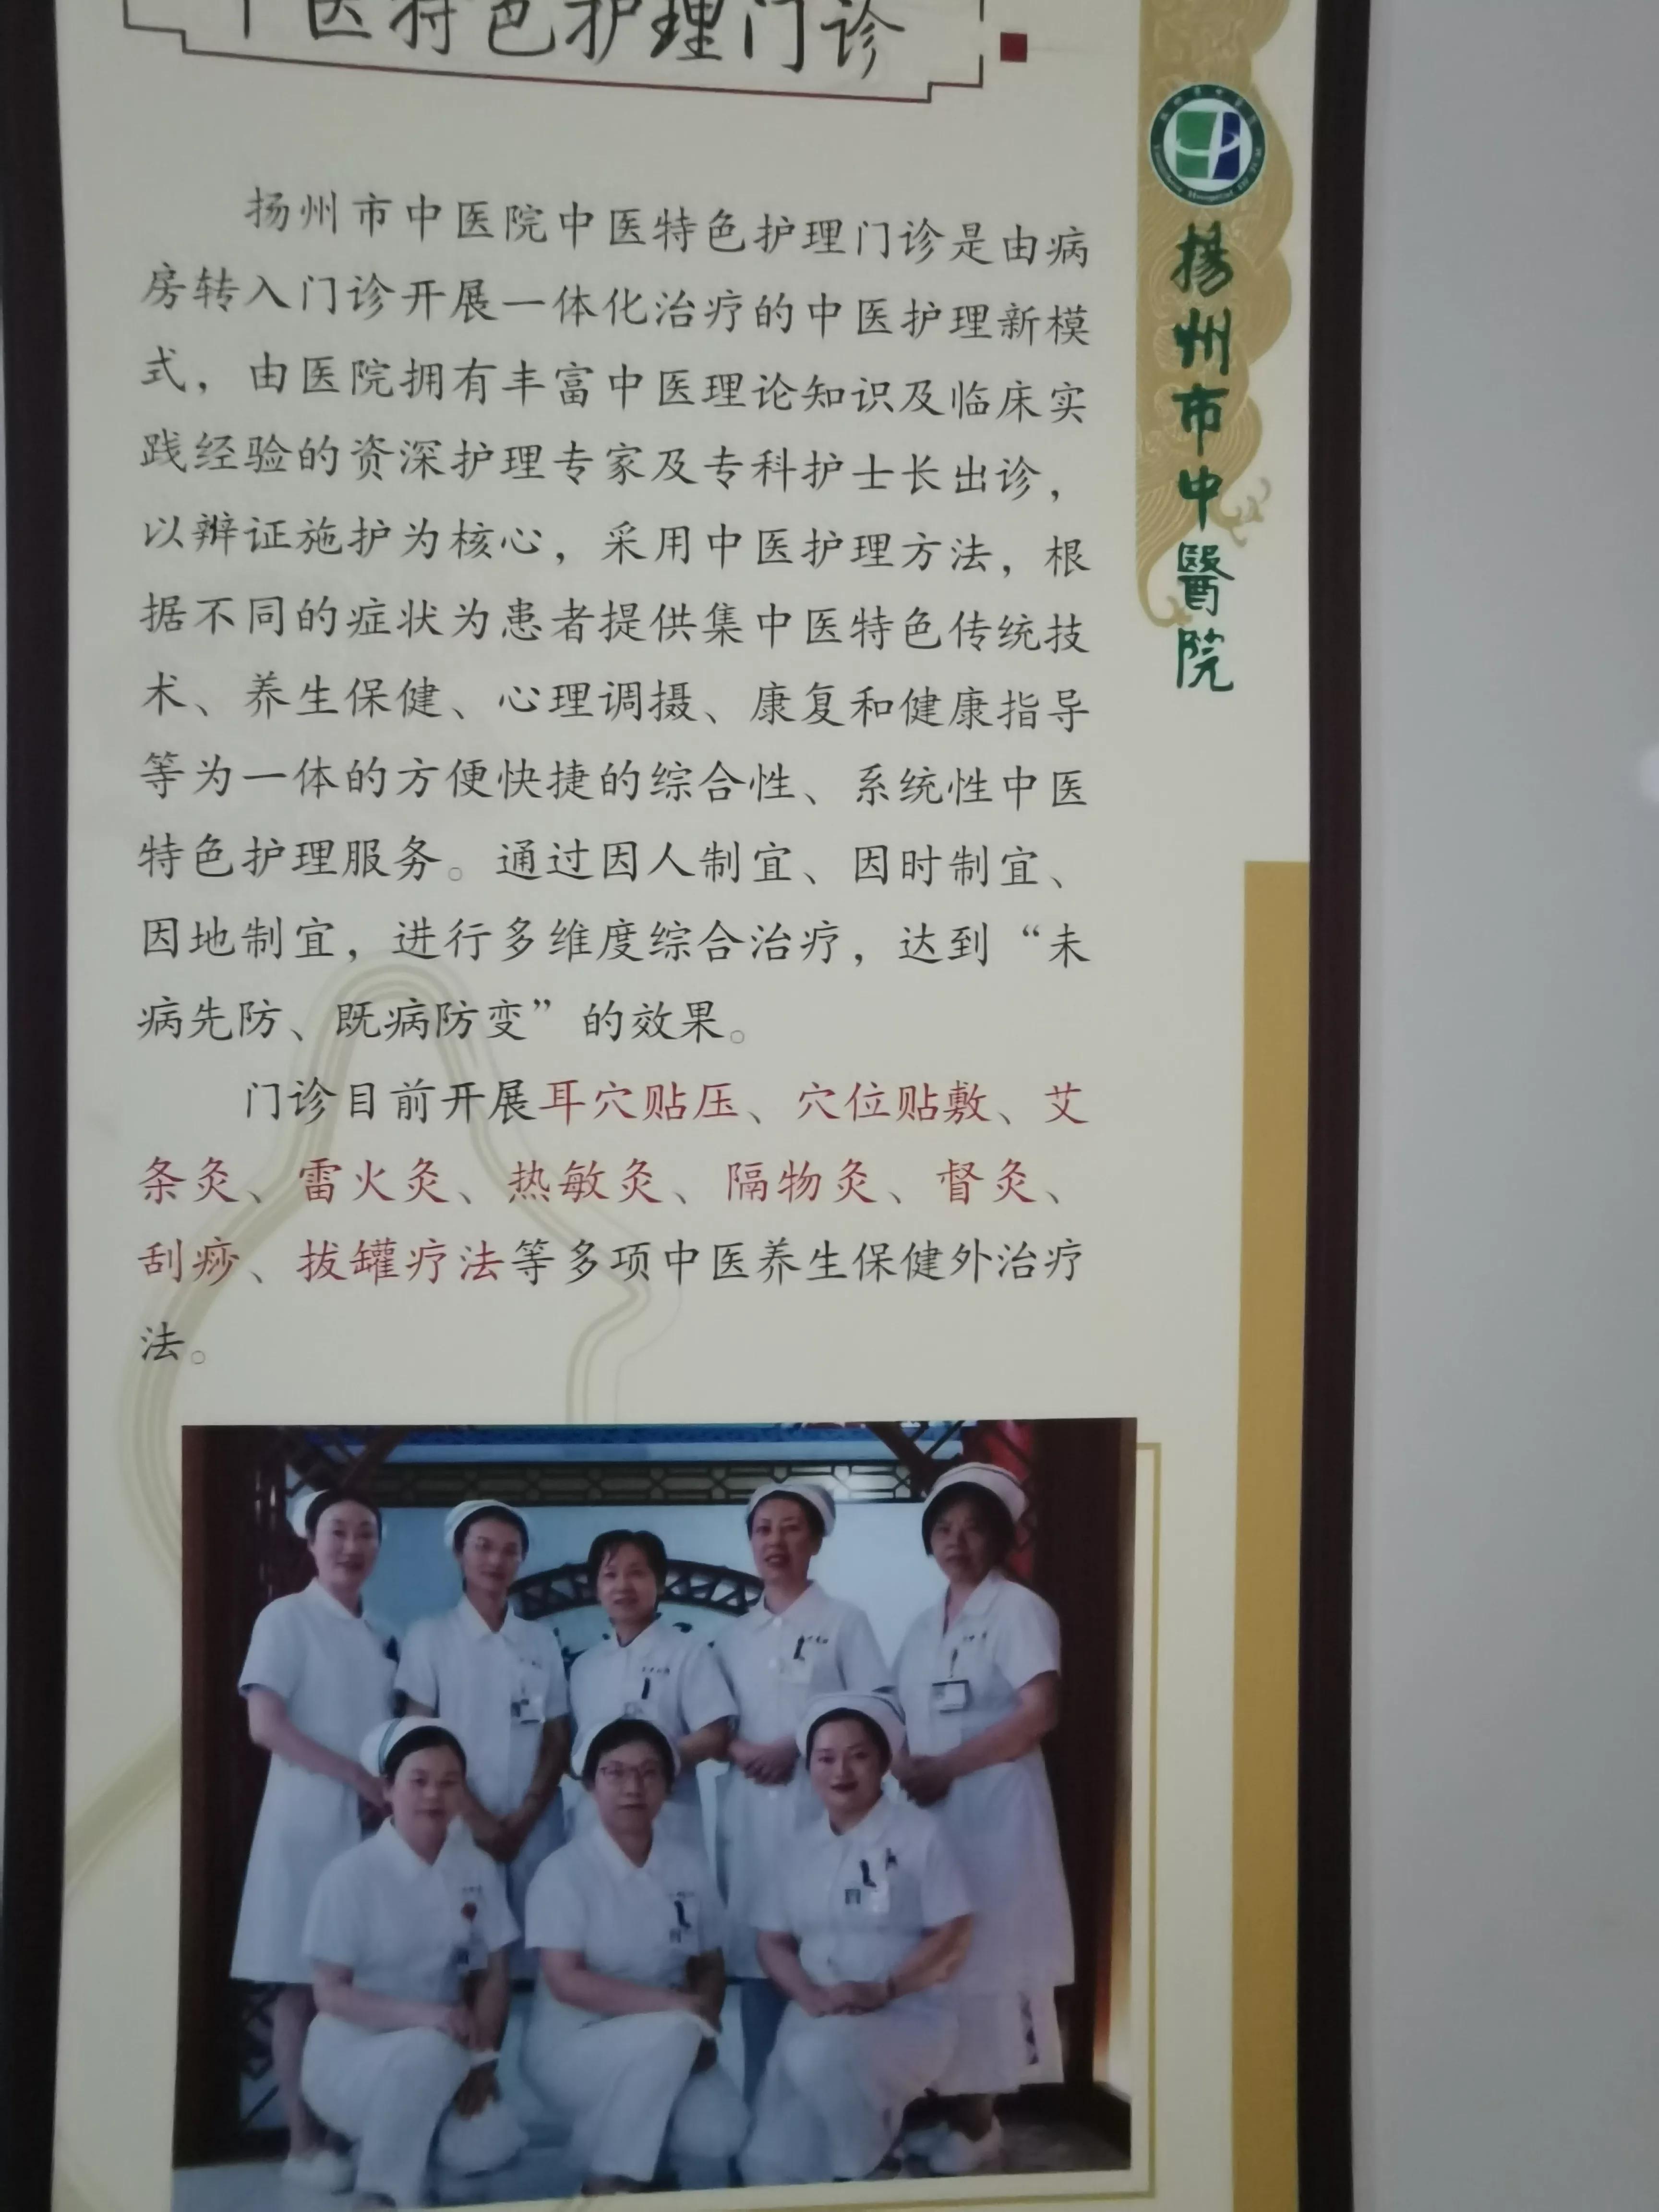 中医特色护理门诊
揚州市中醫院
扬州市中医院中医特色护理门诊是由病
房转入门诊开展一体化治疗的中医护理新模
式，由医院拥有丰富中医理论知识及临床实
践经验的资深护理专家及专科护士长出诊，
以辨证施护为核心，采用中医护理方法，根
据不同的症状为患者提供集中医特色传统技
术、养生保健、心理调摄、康复和健康指导
等为一体的方便快捷的综合性、系统性中医
特色护理服务。通过因人制宜、因时制宜、
因地制宜，进行多维度综合治疗，达到“未
病先防、既病防变”的效果。
门诊目前开展耳穴贴压、穴位贴敷、艾
条灸、雷火灸、热敏灸、隔物灸、督灸、
刮痧、拔罐疗法等多项中医养生保健外治疗
法。